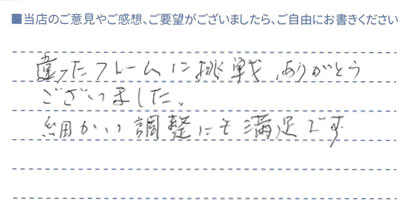 ■当店のご意見やご感想、ご要望がございましたら、ご自由にお書きください
違ったフレームに挑戦、ありがとう
ございました。
細かい調整にも満足です